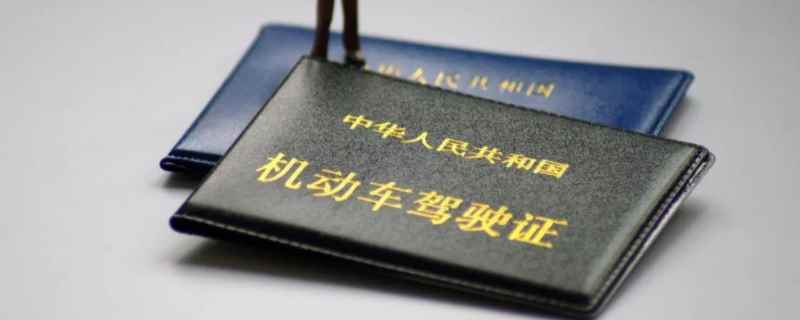 人民共和国
中华人民共和国
机动车驾驶证